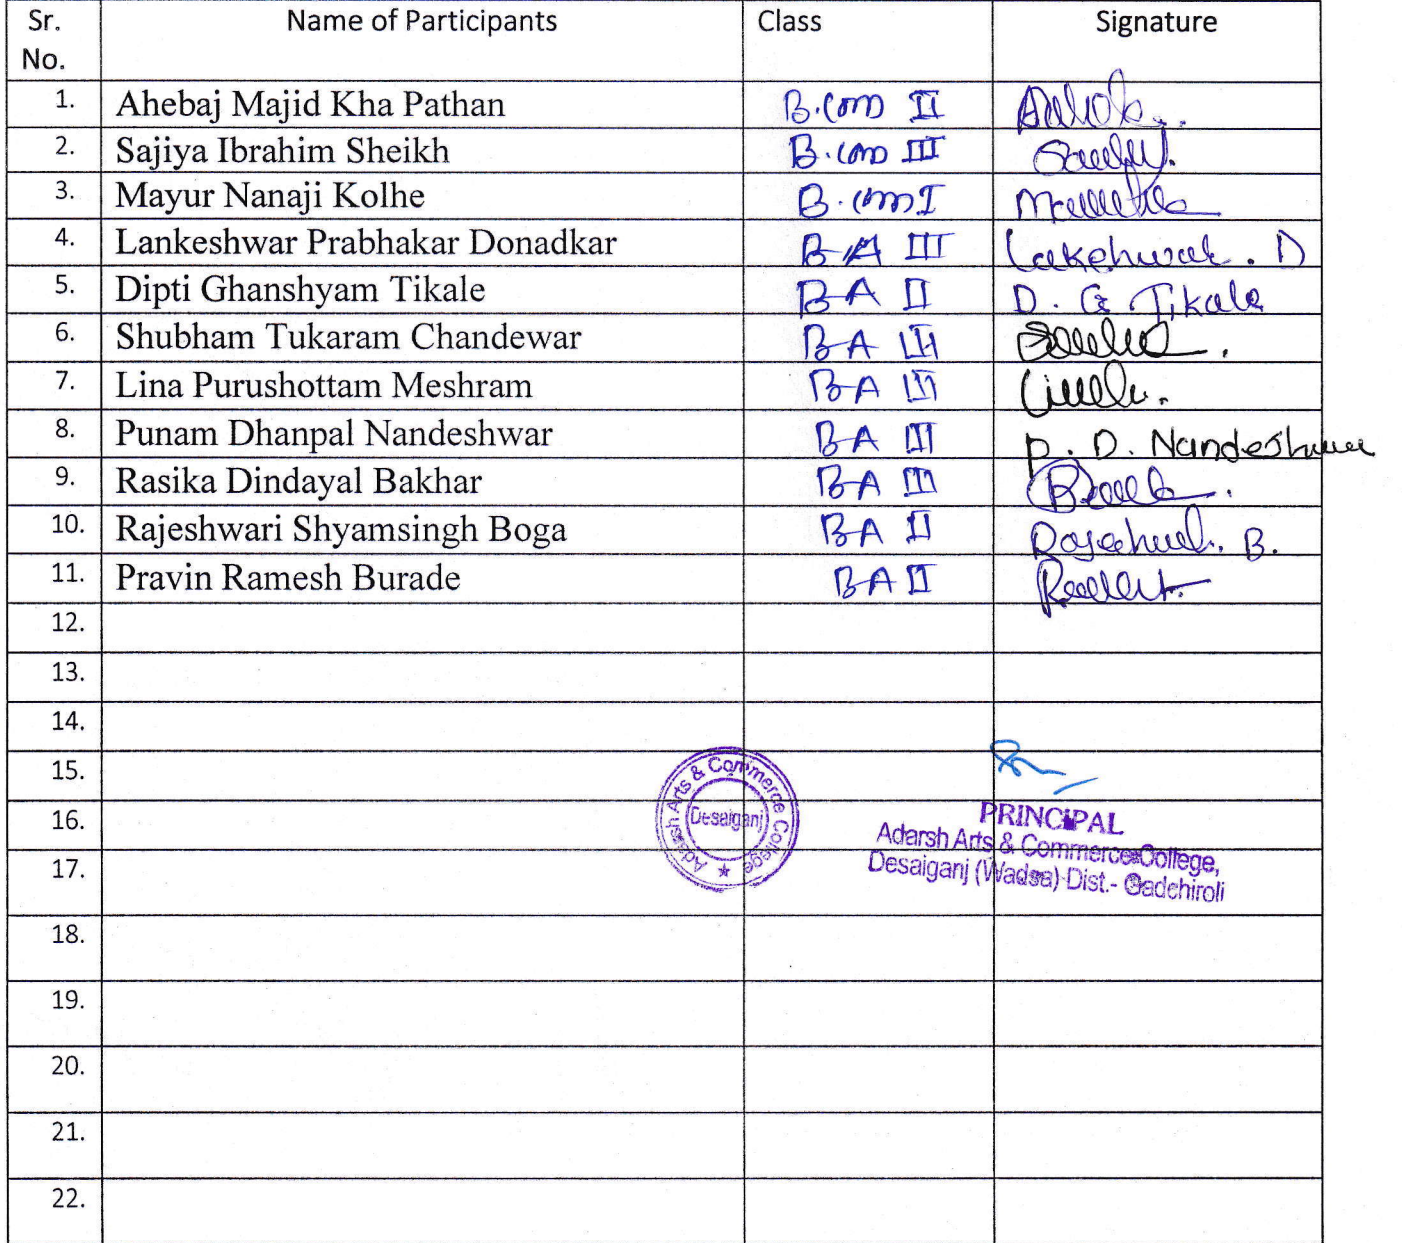 Sr. No. Name of Participants Class Signature
1. Ahebaj Majid Kha Pathan B.com II
2. Sajiya Ibrahim Sheikh B.com III
3. Mayur Nanaji Kolhe B.com I
4. Lankeshwar Prabhakar Donadkar B A III Lakeshwar . D
5. Dipti Ghanshyam Tikale B A II D. G Tikale
6. Shubham Tukaram Chandewar B A III
7. Lina Purushottam Meshram B A III
8. Punam Dhanpal Nandeshwar B A III P. D. Nandeshwar
9. Rasika Dindayal Bakhar B A III
10. Rajeshwari Shyamsingh Boga B A II B.
11. Pravin Ramesh Burade B A II
12.
13.
14.
15.
16.
17.
Adarsh Arts & Commerce College
Desaiganj
PRINCIPAL
Adarsh Arts & Commerce College,
Desaiganj (Wadsa) Dist.- Gadchiroli
18.
19.
20.
21.
22.